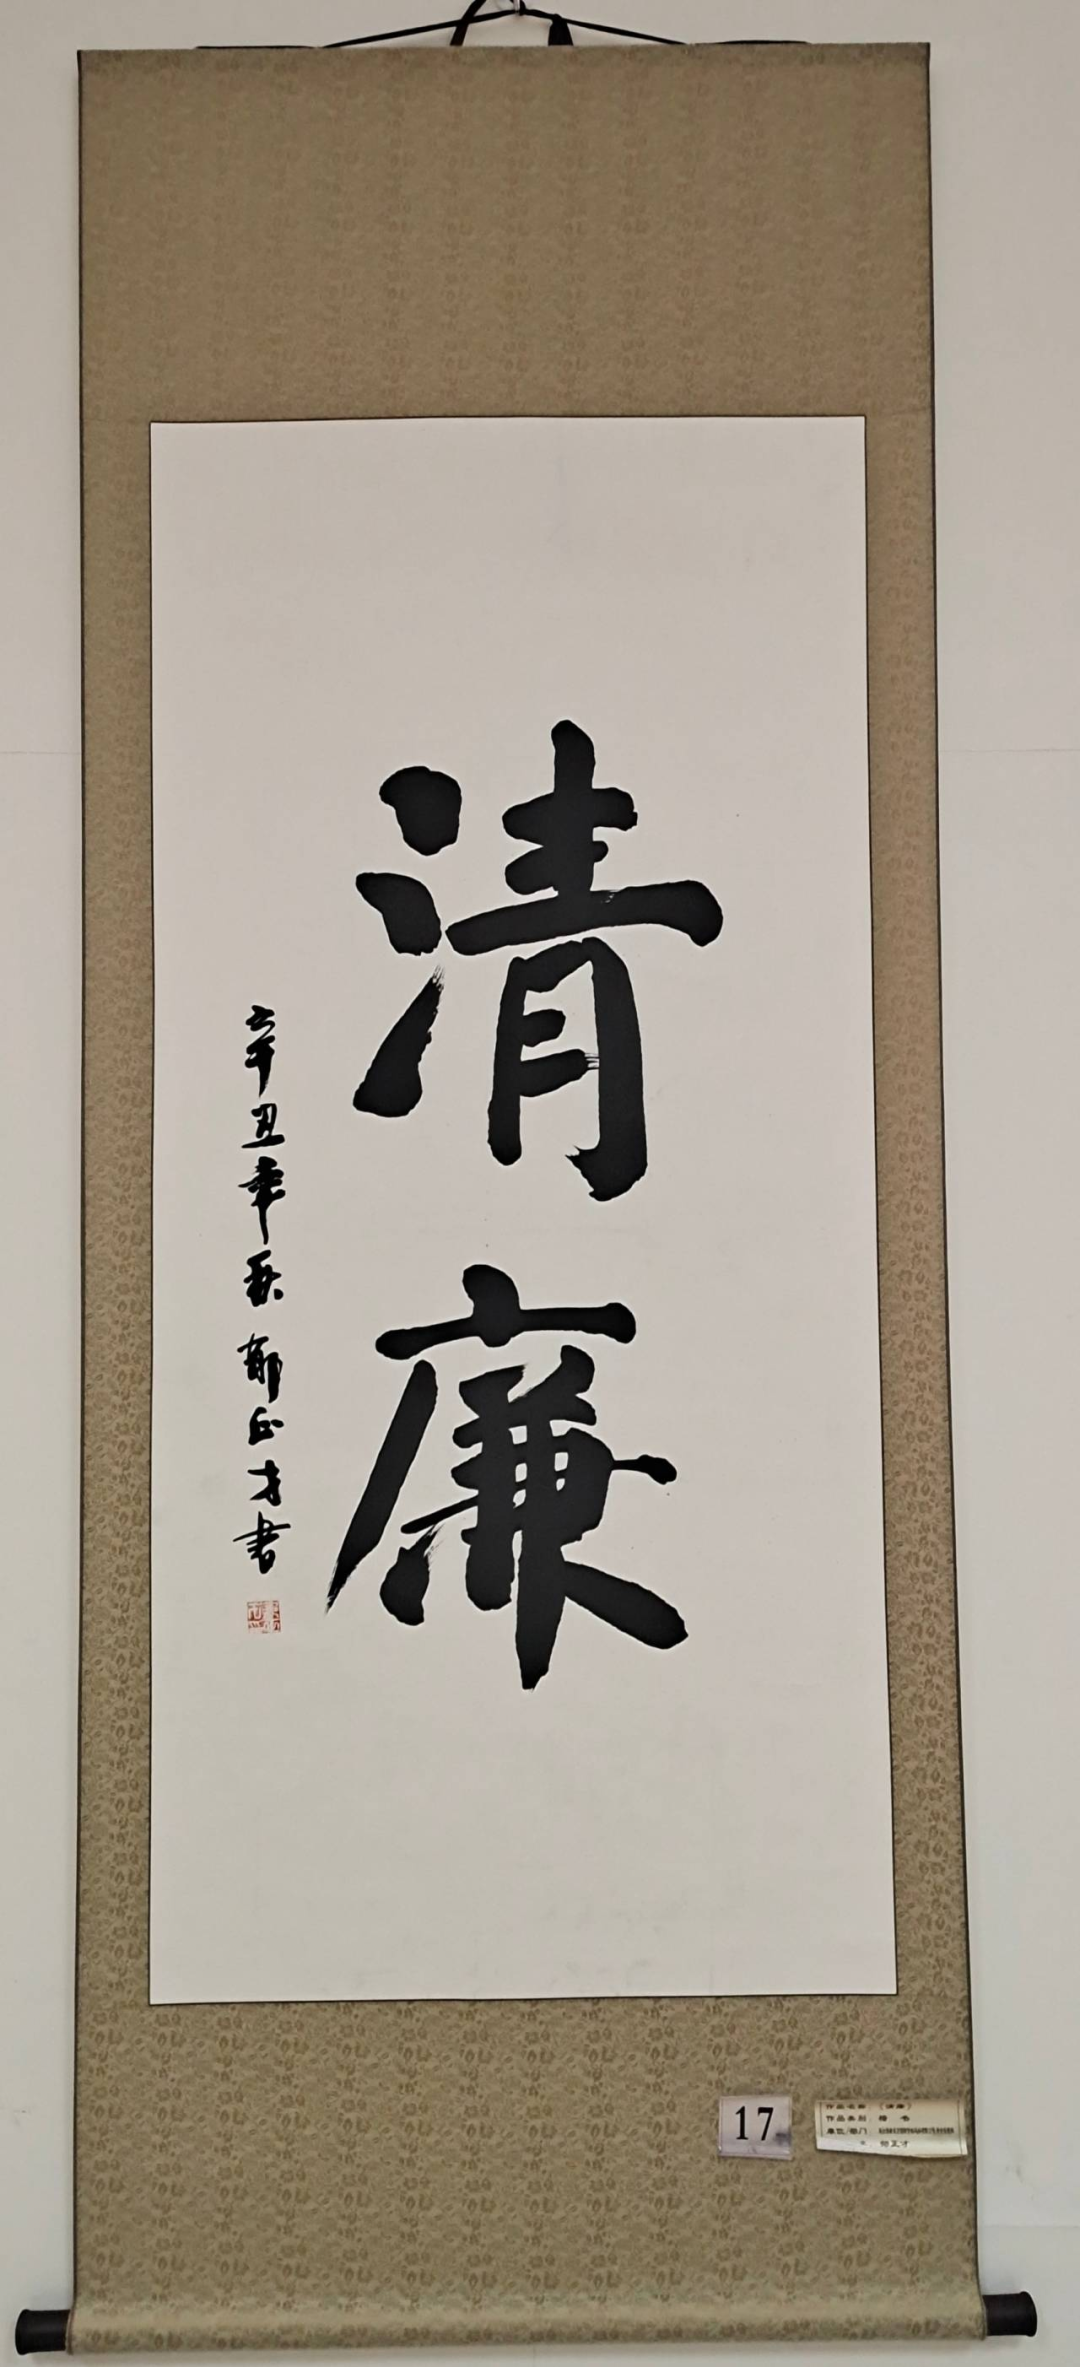 清廉
辛丑年秋 郁正才书
17
作品名称：《清廉》
作品类别：楷 书
单位/部门：
郁正才